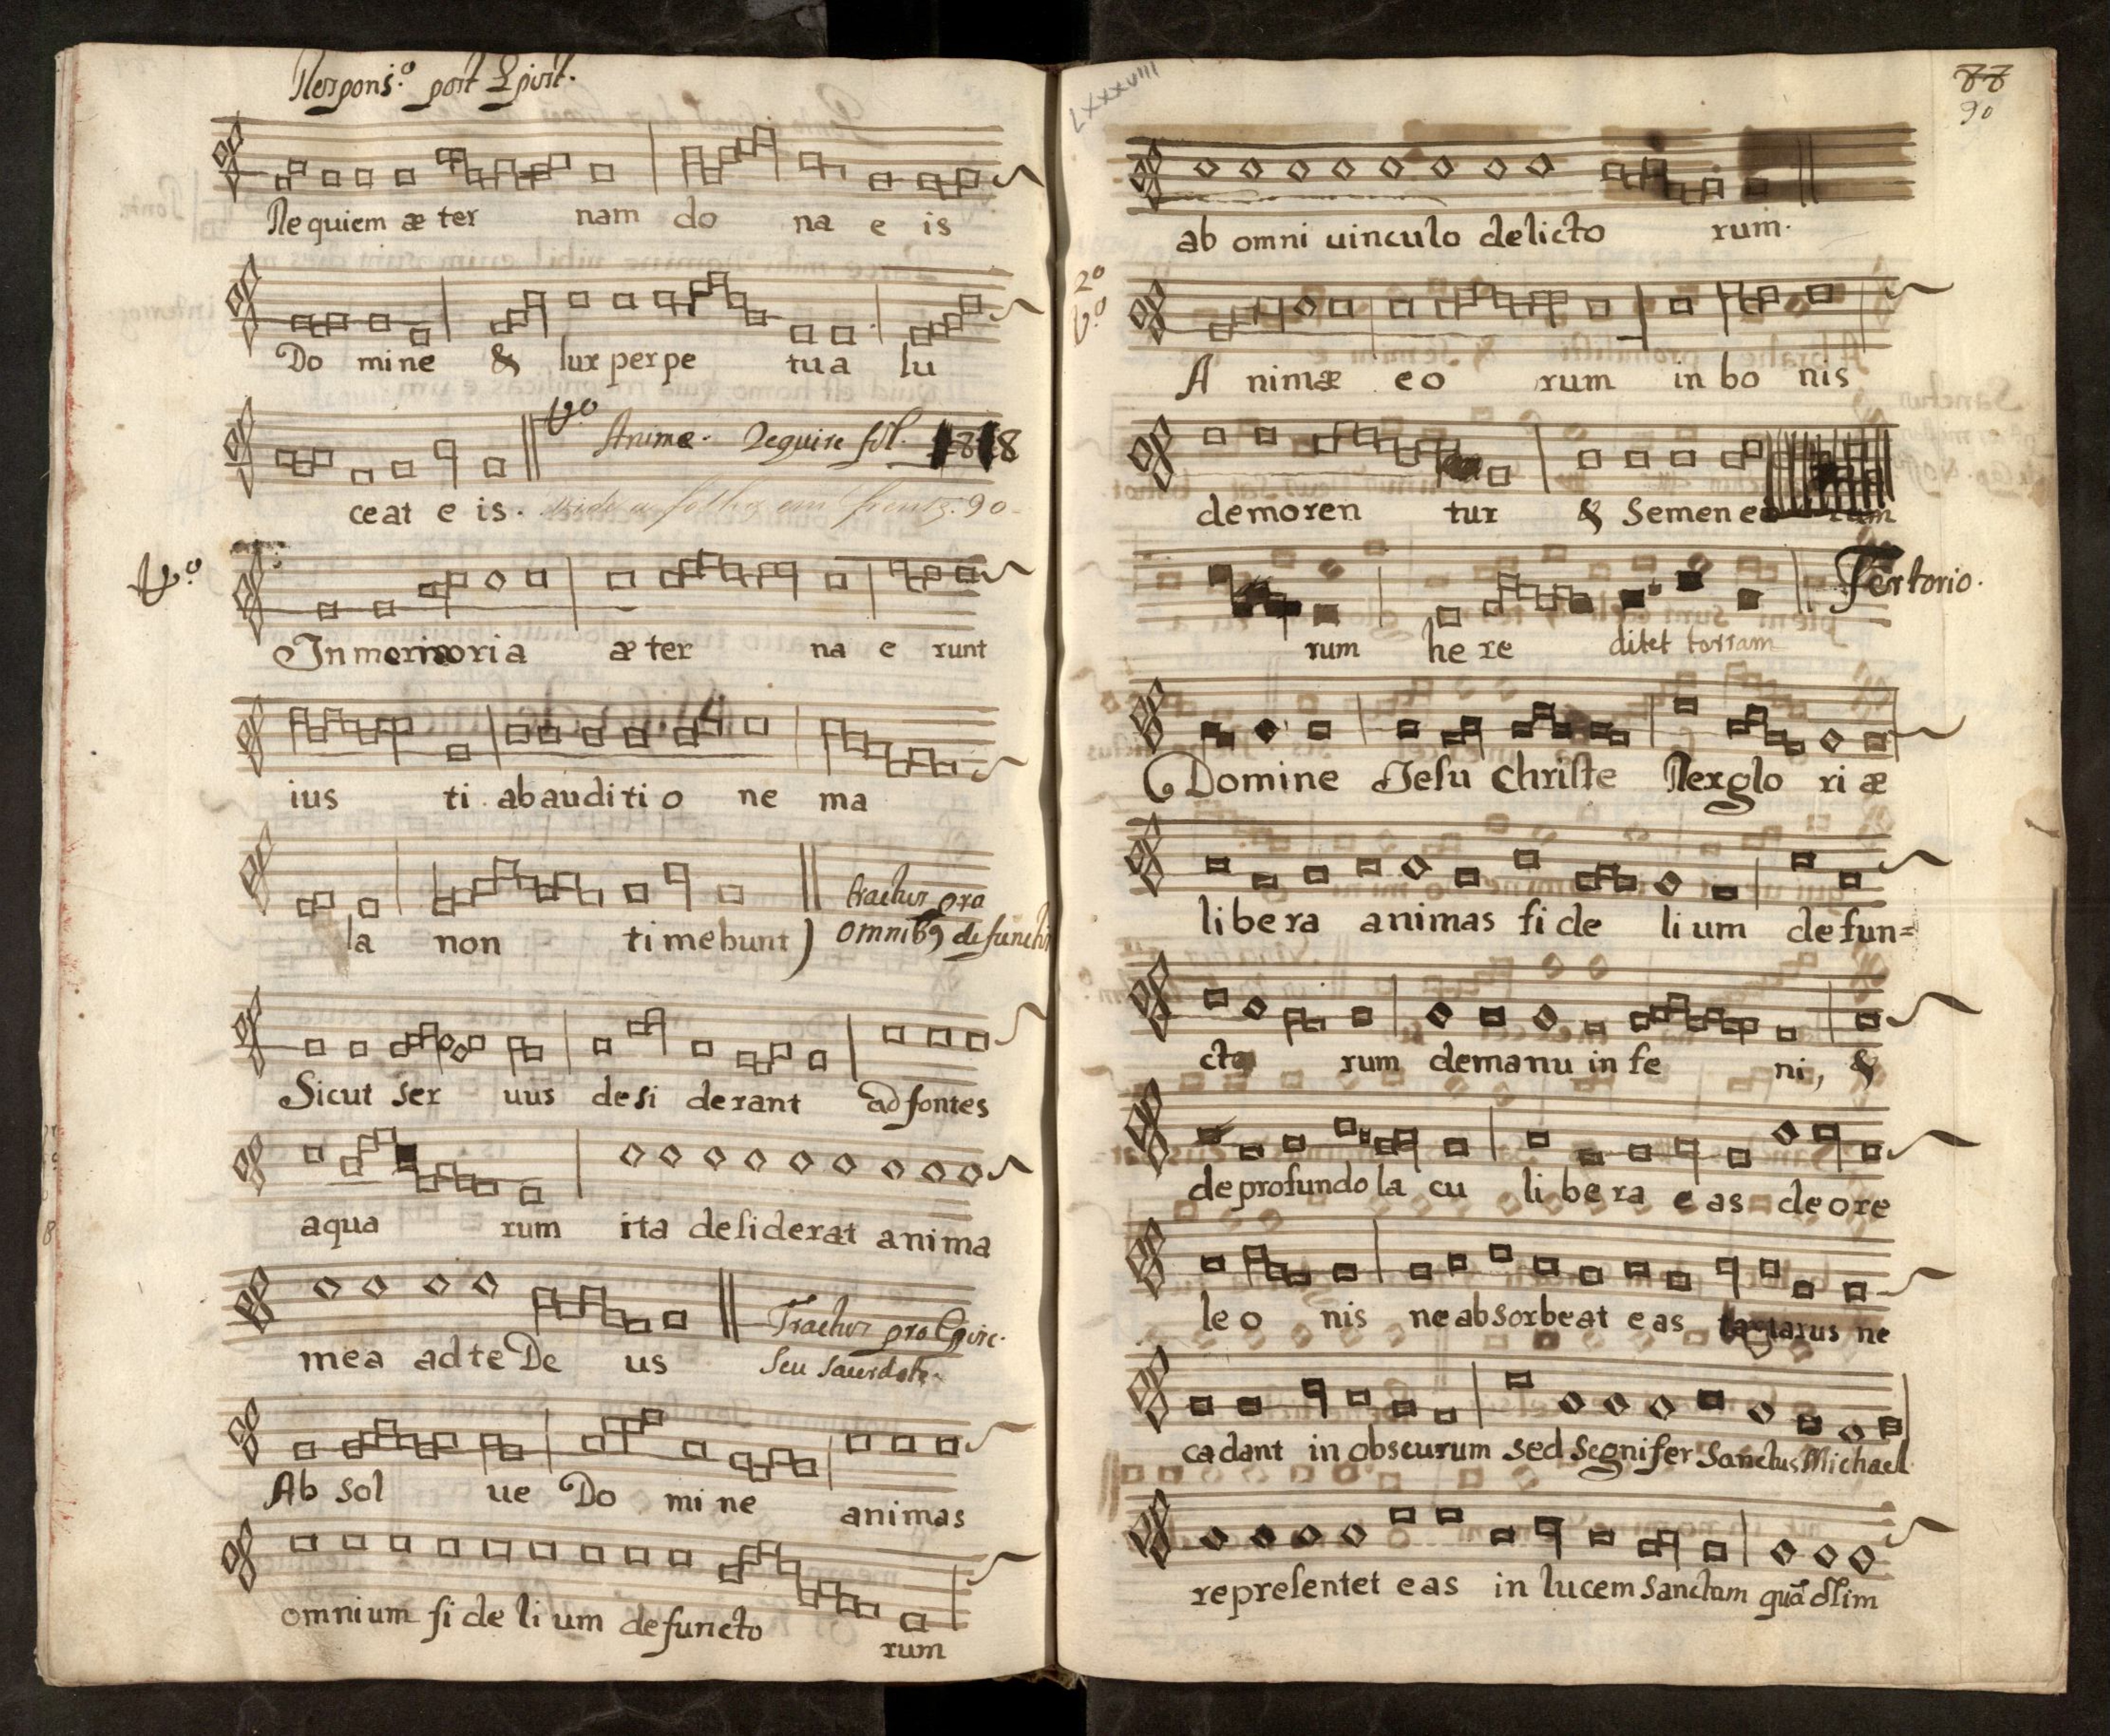 Respons.º post Epist.
Requiem æ ter nam do na e is
Do mine & lux perpe tua lu
V.º Animæ. Require fol. 88
ceat e is. vide a folha em frente. 90
V.º
In memoria æ ter na e runt
ius ti abauditi o ne ma
tractus pro
la non timebunt) omnibꝯ defunctis
Sicut ser uus desi derant ad fontes
aqua rum ita desiderat anima
Tractus pro Episc.
mea ad te De us seu sacerdote.
Ab sol ue Do mi ne animas
omnium fi de li um defuncto rum
LXXXVIII
87
90
ab omni uinculo delicto rum.
2º
V.º
A nimæ eo rum in bo nis
demoren tur & Semen eo rum
Fertorio.
rum he re ditet terram
Domine Jesu Christe Rex glo ri æ
libera animas fi de li um de fun=
cto rum demanu in fe ni, &
de profundo la cu li be ra e as de ore
le o nis ne absorbeat eas tartarus ne
cadant in obscurum sed segnifer Sanctus Michael
representet eas in lucem Sanctam quā olim